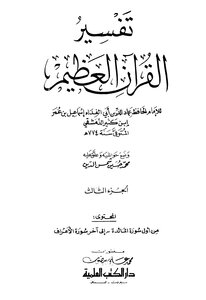 تفسير
القرآن العظيم
للإمام الحافظ عماد الدين أبي الفداء إسماعيل بن عمر
ابن كثير الدمشقي
المتوفى سنة ٧٧٤ هـ
وضع حواشيه وعلق عليه
محمد حسين شمس الدين
الجزء الثالث
المحتوى:
من أول سورة المائدة - إلى آخر سورة الأعراف
منشورات
محمد علي بيضون
دار الكتب العلمية